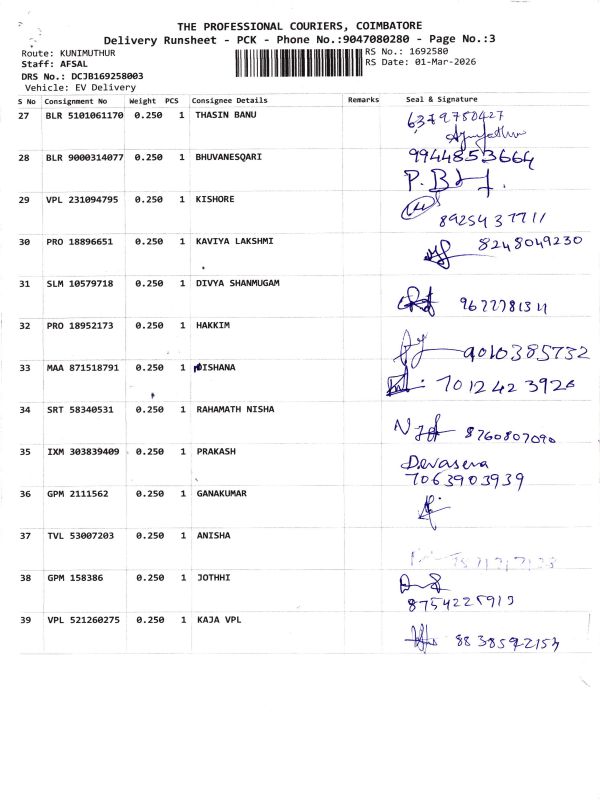 THE PROFESSIONAL COURIERS, COIMBATORE
Delivery Runsheet - PCK - Phone No.:9047080280 - Page No.:3
Route: KUNIMUTHUR
RS No.: 1692580
Staff: AFSAL
RS Date: 01-Mar-2026
DRS No.: DCJB169258003
Vehicle: EV Delivery
S No Consignment No Weight PCS Consignee Details Remarks Seal & Signature
27 BLR 5101061170 0.250 1 THASIN BANU 6379750427
28 BLR 9000314077 0.250 1 BHUVANESQARI 9944853664
P.B
29 VPL 231094795 0.250 1 KISHORE
8925437711
30 PRO 18896651 0.250 1 KAVIYA LAKSHMI 8248049230
31 SLM 10579718 0.250 1 DIVYA SHANMUGAM
32 PRO 18952173 0.250 1 HAKKIM
9010385732
33 MAA 871518791 0.250 1 DISHANA
7012423926
34 SRT 58340531 0.250 1 RAHAMATH NISHA
8760807090
35 IXM 303839409 0.250 1 PRAKASH
Devasena
7063903939
36 GPM 2111562 0.250 1 GANAKUMAR
37 TVL 53007203 0.250 1 ANISHA
38 GPM 158386 0.250 1 JOTHHI
8754225913
39 VPL 521260275 0.250 1 KAJA VPL
8838592153